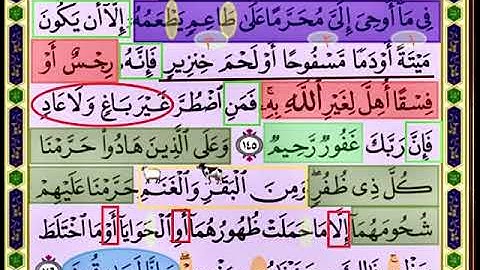 فِي مَآ أُوحِيَ إِلَيَّ مُحَرَّمًا عَلَىٰ طَاعِمٍ يَطْعَمُهُۥٓ إِلَّآ أَن يَكُونَ
مَيْتَةً أَوْ دَمًا مَّسْفُوحًا أَوْ لَحْمَ خِنزِيرٍ فَإِنَّهُۥ رِجْسٌ أَوْ
فِسْقًا أُهِلَّ لِغَيْرِ ٱللَّهِ بِهِۦ فَمَنِ ٱضْطُرَّ غَيْرَ بَاغٍ وَلَا عَادٍ
فَإِنَّ رَبَّكَ غَفُورٌ رَّحِيمٌ ١٤٥ وَعَلَى ٱلَّذِينَ هَادُوا۟ حَرَّمْنَا
كُلَّ ذِي ظُفُرٍ وَمِنَ ٱلْبَقَرِ وَٱلْغَنَمِ حَرَّمْنَا عَلَيْهِمْ
شُحُومَهُمَآ إِلَّا مَا حَمَلَتْ ظُهُورُهُمَآ أَوِ ٱلْحَوَايَآ أَوْ مَا ٱخْتَلَطَ